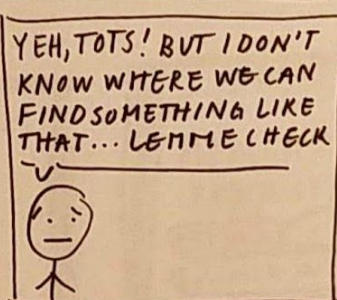 YEH, TOTS! BUT I DON'T
KNOW WHERE WE CAN
FIND SOMETHING LIKE
THAT... LEMME CHECK